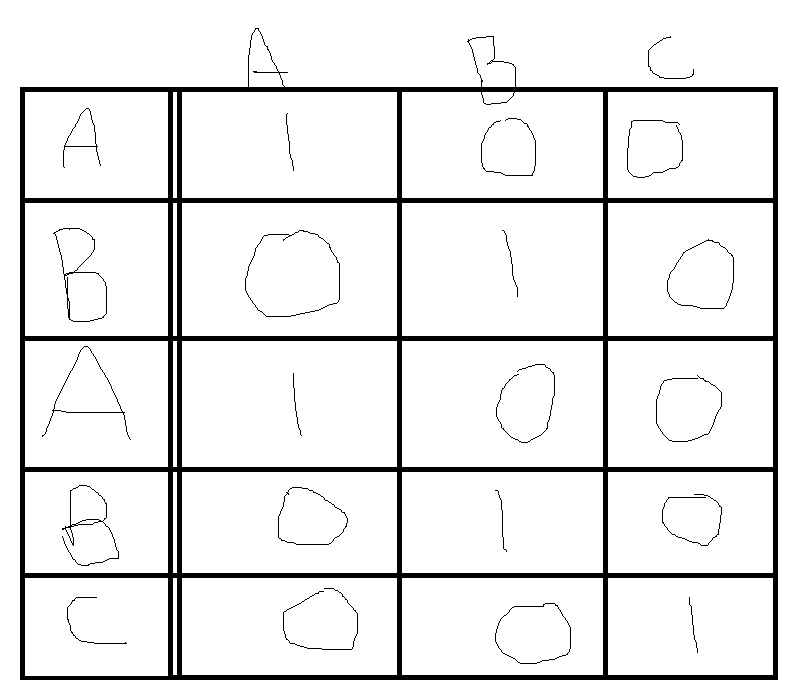 A B C
A 1 0 0
B 0 1 0
A 1 0 0
B 0 1 0
C 0 0 1